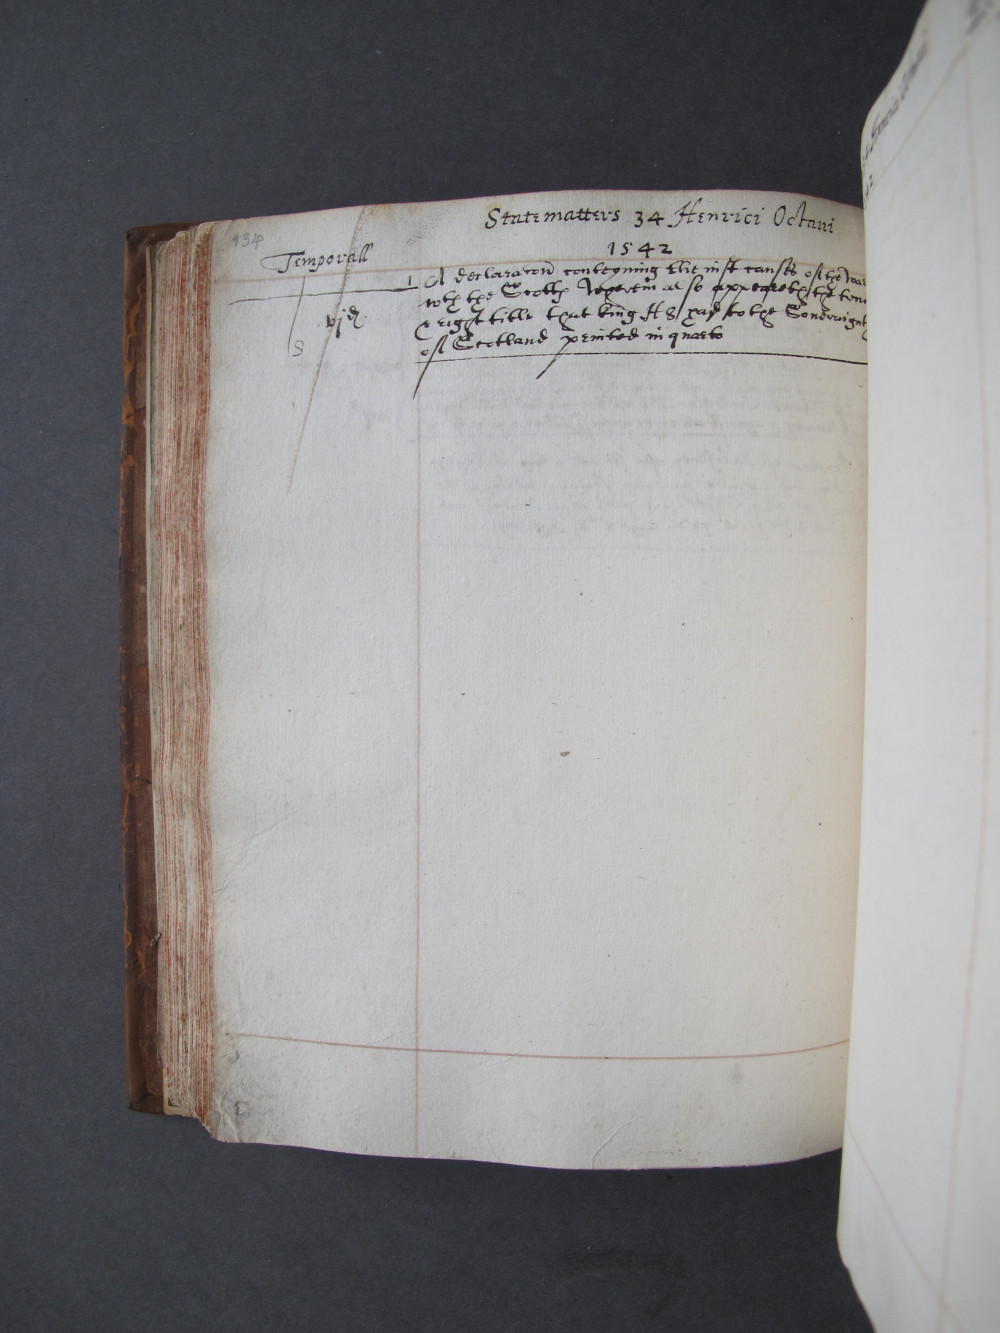 934
Statematters 34 Henrici Octavi
1542
Temporall
1 A declaracon conteyning the iust causes of the war
wth the Scotts wherein also appeareth the trew
& right title that king H 8 had to the Soveraignt
vjd
of Scotland printed in quarto
S